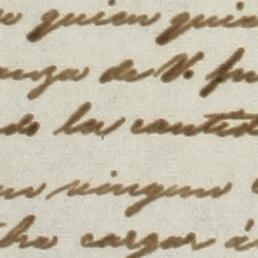 quien quie
anza de V. fu
do la cantid
ninguno
cargar á